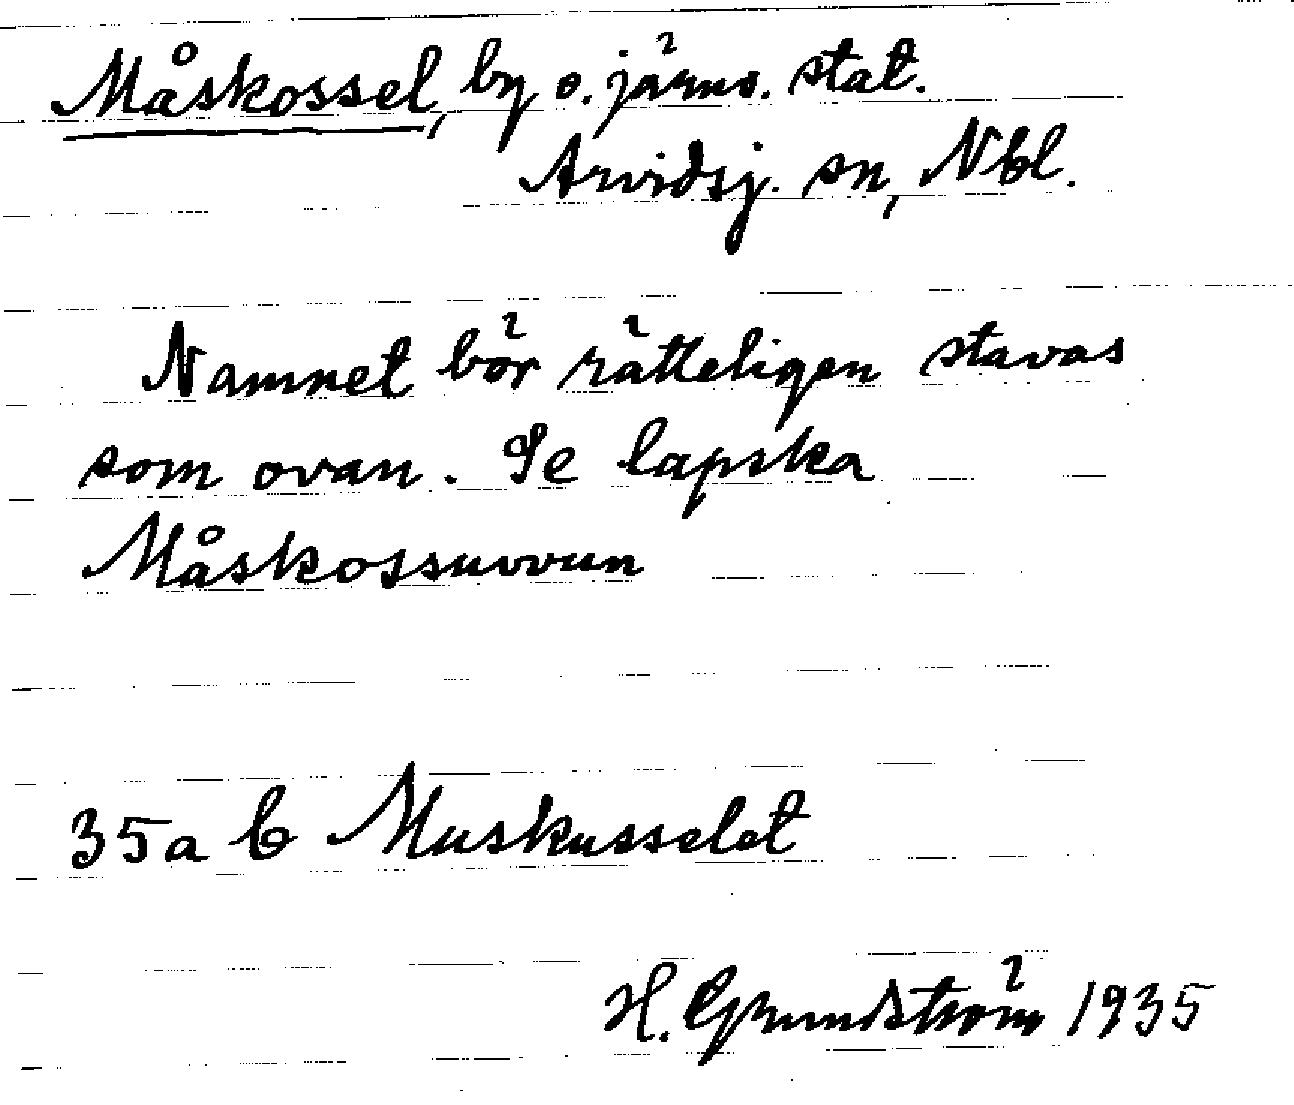 Måskossel, by o. järnv. stat.
Arvidsj. sn, Nbl.
Namnet bör rätteligen stavas
som ovan. Se lapska
Måskossuvvun
35a b Muskusselet
H. Grundström 1935